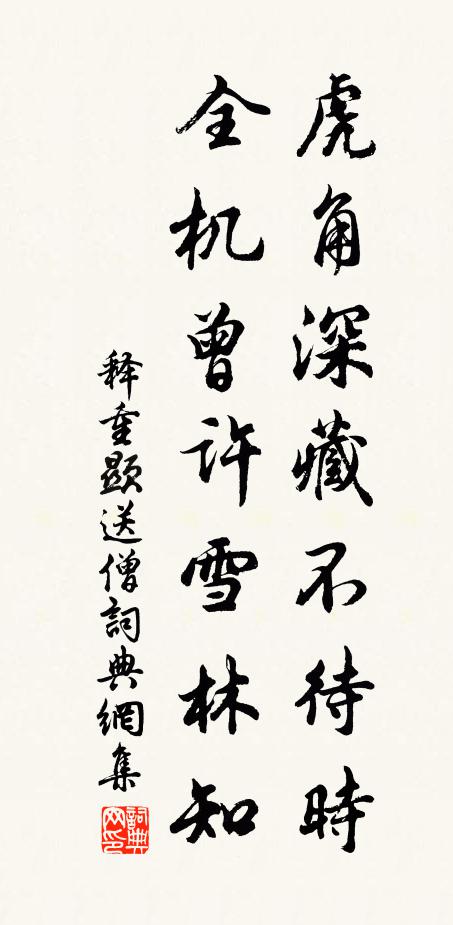 虎角深藏不待時
全机曾许雪林知
释重顯送僧詞典網集
詞典網印